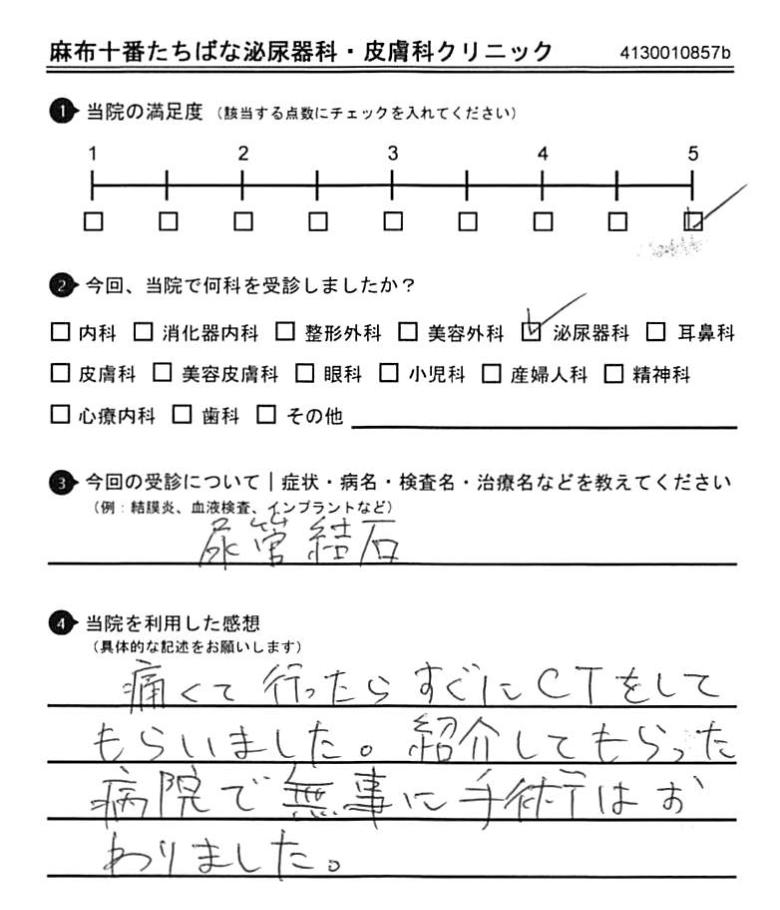 麻布十番たちばな泌尿器科・皮膚科クリニック 4130010857b
1 当院の満足度 (該当する点数にチェックを入れてください)
1 2 3 4 5
2 今回、当院で何科を受診しましたか?
内科 消化器内科 整形外科 美容外科 泌尿器科 耳鼻科
皮膚科 美容皮膚科 眼科 小児科 産婦人科 精神科
心療内科 歯科 その他
3 今回の受診について|症状・病名・検査名・治療名などを教えてください
(例:結膜炎、血液検査、インプラントなど)
尿管結石
4 当院を利用した感想
(具体的な記述をお願いします)
痛くて行ったらすぐにCTをして
もらいました。紹介してもらった
病院で無事に手術はお
わりました。